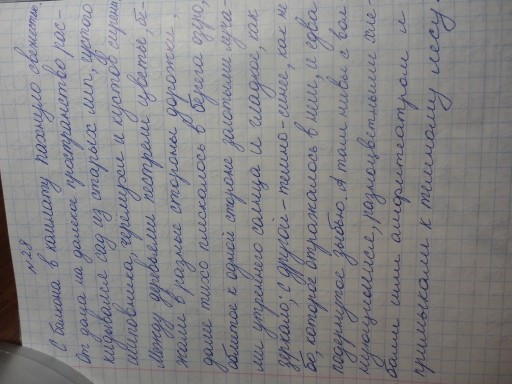 №28
С балкона в комнату пахнуло свежестью.
От дома на далеко пространство рас-
кидывался сад из старых лип, густого
шиповника, черемухи и кустов сирени.
Между деревьями пестрели цветы, бе-
жали в разные стороны дорожки,
далее тихо плескалось в берега озеро,
облитое к одной стороне золотыми луча-
ми утреннего солнца и гладкое, как
зеркало; с другой - темно-синее, как не-
бо, которое отражалось в нем, и едва
подернутое зыбью. А там нивы с вол-
нующимися, разноцветными хле-
бами шли амфитеатром и
примыкали к темному лесу.